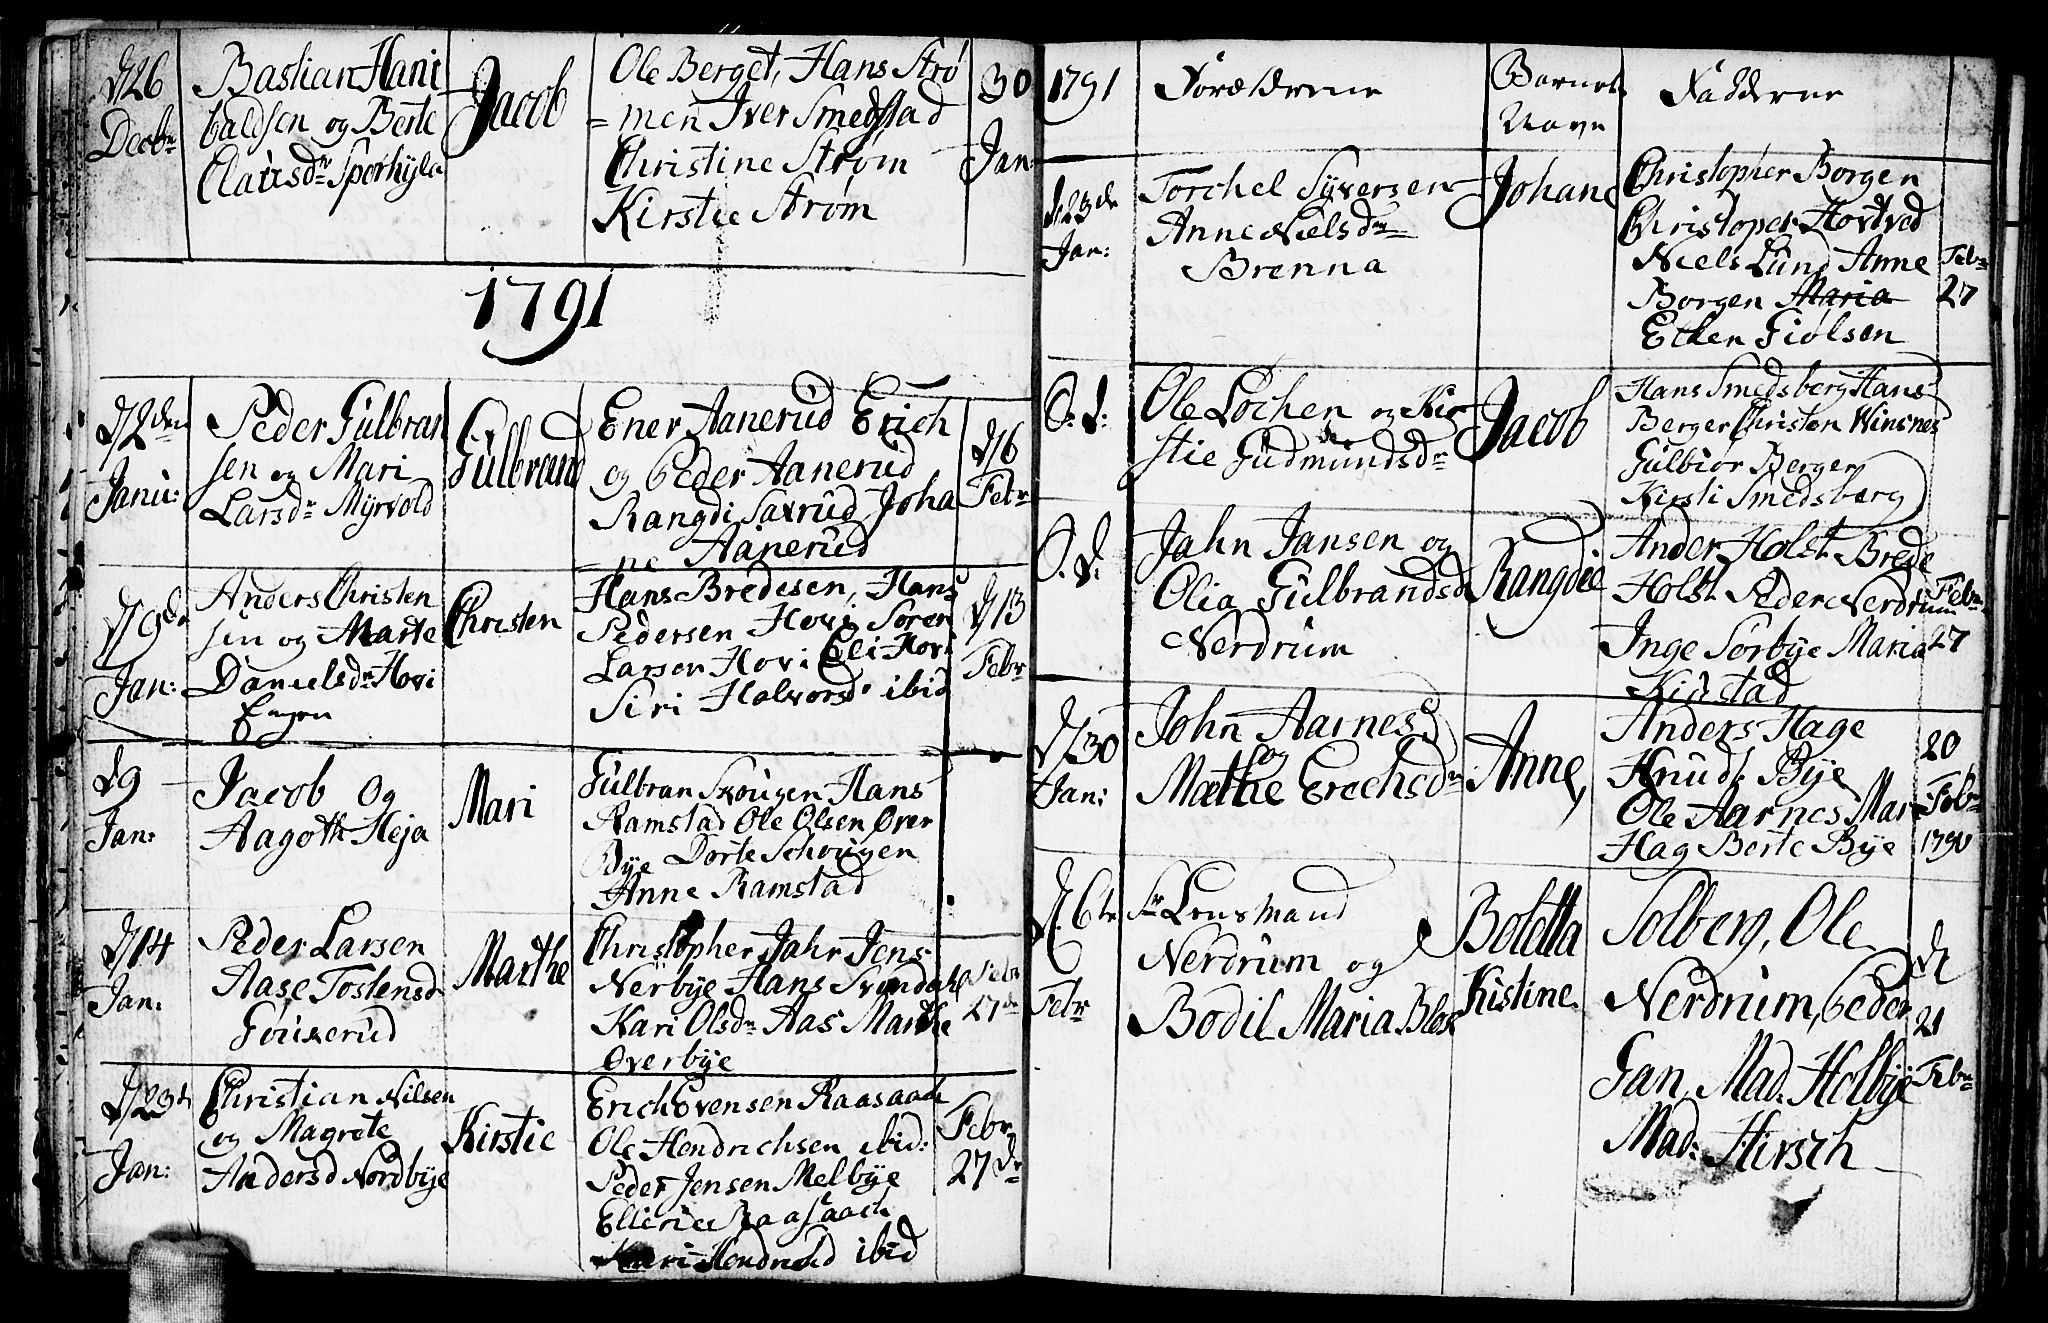 d 26 Decbr
Bastian Hani
baldsen og Berte
Clausdr Sporhyla
Jacob
Ole Berget, Hans Strø
=men Iver Smedstad
Christine Strøm
Kirstie Strøm
30 Jan:
1791
d 2den Janu:
Peder Gulbran
sen og Mari
Larsdr Myrvold
Gulbrand
Ener Aanerud Erich
og Peder Aanerud
Rangdi Saxrud, Joha
=ne Aanerud
d 6 Febr
d 9de Jan:
Anders Christen
sen og Marte
Danielsdr Hovi
Engen
Christen
Hans Bredesen, Hans
Pedersen Hovi Søren
Larsen Hovi Eli Hovi
Siri Halvorsd ibid
d 13 Febr
d 9 Jan:
Jacob Og
Aagoth Heja
Mari
Gulbran Skougen Hans
Ramstad Ole Olsen Over
Bye Dorte Schougen
Anne Ramstad
d 14 Jan:
Peder Larsen
Aase Tostensd
Marthe
Christopher Jahr Jens
Nerbye Hans Svindahl
Kari Olsdr Aas Marthe
Overbye
Febr 27de
d 23d Jan:
Christian Nilsen
og Magrete
Andersd Nordbye
Kirstie
Erich Evensen Raasaach
Ole Hendrichsen ibid:
Peder Jensen Melbye
Raasaach
Kari ibid
Febr 27de
1791
Forældrene
Barnets
Navn
Fadderne
d 23de Jan:
Torchel Syversen
Anne Nielsdr
Brenna
Johane
Christopher Borgen
Christoper Hovtved
Niels Lund Anne
Borgen Maria
Ellen Giølsen
Febr 27
O. d:
Ole Lochen og Kir
stie Gudmundsdr
Jacob
Hans Smedsberg Hans
Berger Christen Winsnes
Gulbiør Berger
Kirsti Smedsberg
O. d.
Jahn Jansen og
Olia Gulbrandsd
Nerdrum
Rangdie
Ander Holst Brede
Holst Peder Nerdrum
Inge Sørbye Maria
Kirstad
Febr 27
d 30 Jan:
John Aarnes
og
Mathe Erechsdr
Anne,
Anders Hage
Knud Bye
Ole Aarnes Mari
Hag Berte Bye
20 Febr 1790
d. 6te Febr
Sr Lensmand
Nerdrum og
Bodil Maria
Boletta
Kistine.
Solberg, Ole
Nerdrum, Peder
Jan, Mad. Holbye
Mad: Hirsch
d 21 Febr